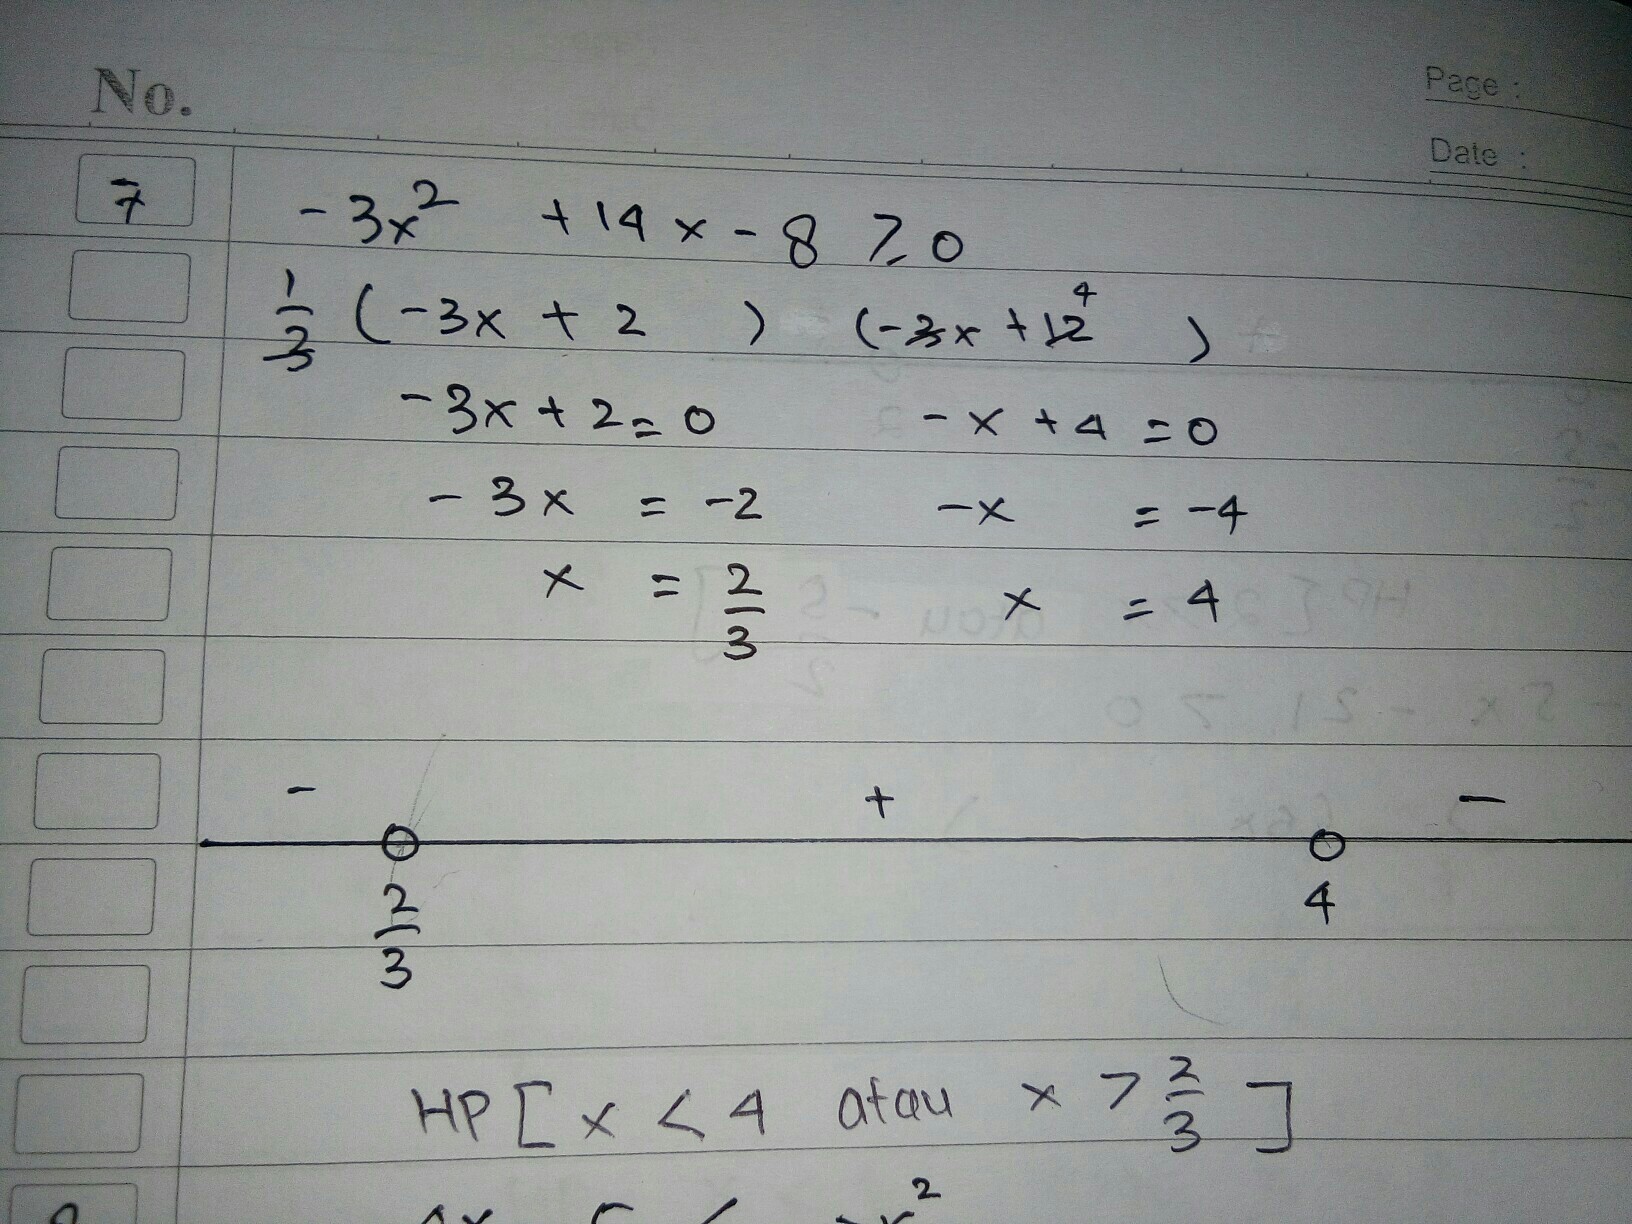 No.
Page :
Date :
7 -3x² + 14x - 8 ≥ 0
1/3 (-3x + 2) (-3x + 12 4)
-3x + 2 = 0 -x + 4 = 0
-3x = -2 -x = -4
x = 2/3 x = 4
- + -
2/3 4
HP [ x < 4 atau x > 2/3 ]